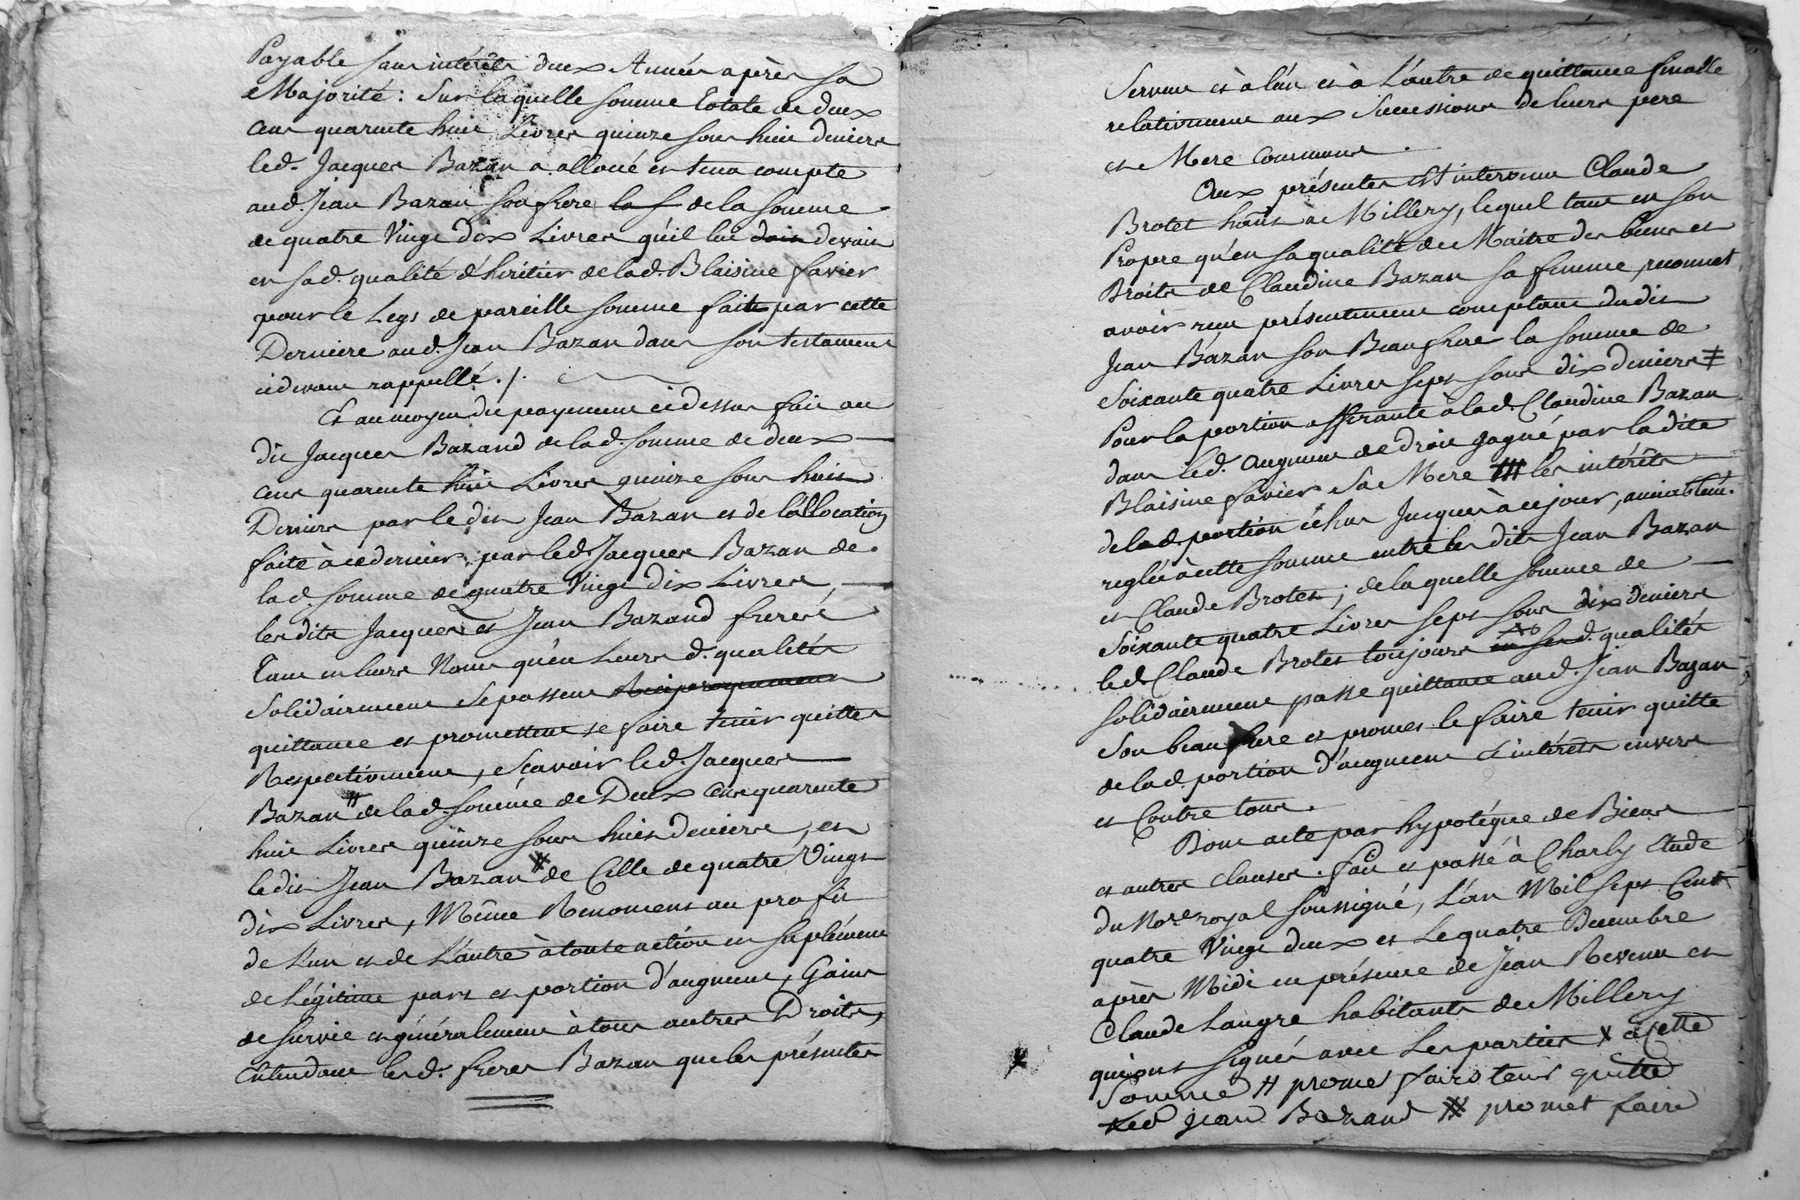 Payable sans intérêts deux Années après sa
Majorité: Sur laquelle somme totale de deux
cent quarente huit Livres quinze sous huit deniers
led. Jacques Bazan a alloué et tenu compte
aud. Jean Bazan son frere la s de la somme
de quatre Vingt dix Livres qu'il lui doit devait
en sad. qualité d'héritier de lad. Blaisine favier
pour le Legs de pareille somme faite par cette
Derniere aud. Jean Bazan dans son testament
cidevant rappellé./.
Et au moyen du payement cidessus fait au
dit Jacques Bazand de lad. somme de deux
cent quarente huit Livres quinze sous huit
Deniers par le dit Jean Bazan et de l'allocation
faite à ce dernier par led. Jacques Bazan de
lad. somme de quatre Vingt dix Livres,
les dits Jacques et Jean Bazand freres
Tant en leurs Noms qu'en Leurs d. qualités
Solidairement se passent Réciproquement
quittance et promettent se faire tenir quittes
Respectivement, sçavoir led. Jacques
Bazan # de lad. somme de Deux Cent quarente
huit Livres quinze sous huit deniers, et
le dit Jean Bazan # de Celle de quatre Vingt
dix Livres, Même Renoncent au profit
de l'un et de L'autre à toute action en suplément
de Légitime part et portion d'augment, Gains
de survie et généralement à tous autres Droits,
Entendant lesd. freres Bazan que les présentes
Servent et à l'un et à L'autre de quittance finalle
relativement aux Successions de leurs pere
et Mere communs.
Aux présentes est intervenu Claude
Brotet habt. à Millery, lequel tant en son
Propre qu'en sa qualité de Maître des biens et
Droits de Claudine Bazan sa femme, reconnet
avoir reçu présentement comptant dudit
Jean Bazan son Beaufrere la somme de
Soixante quatre Livres sept sous dix deniers ‡
Pour la portion afferante à lad. Claudine Bazan
dans led. Augment de droit gagné par ladite
Blaisine favier sa Mere les intérêts
de lad. portion échus jusques à ce jour, amiablemt.
reglée à cette somme entre les dits Jean Bazan
et Claude Brotet; de laquelle somme de
Soixante quatre Livres sept sous dix deniers
led. Claude Brotet toujours en ses d. qualités
solidairement passe quittance aud. Jean Bazan
Son beaufrere et promet le faire tenir quitte
de lad. portion d'augment et intérêts envers
et Contre tous.
Dont acte par hypotéque de Biens
et autres clauses. fait et passé à Charly Etude
du Nore. royal soussigné, L'an Mil sept Cent
quatre Vingt deux et Le quatre Decembre
après Midi en présence de Jean Revenu et
Claude Laugre habitants de Millery
qui ont signés avec Les parties X à Cette
Somme # promet faire tenir quitte
led Jean Bazand # promet faire